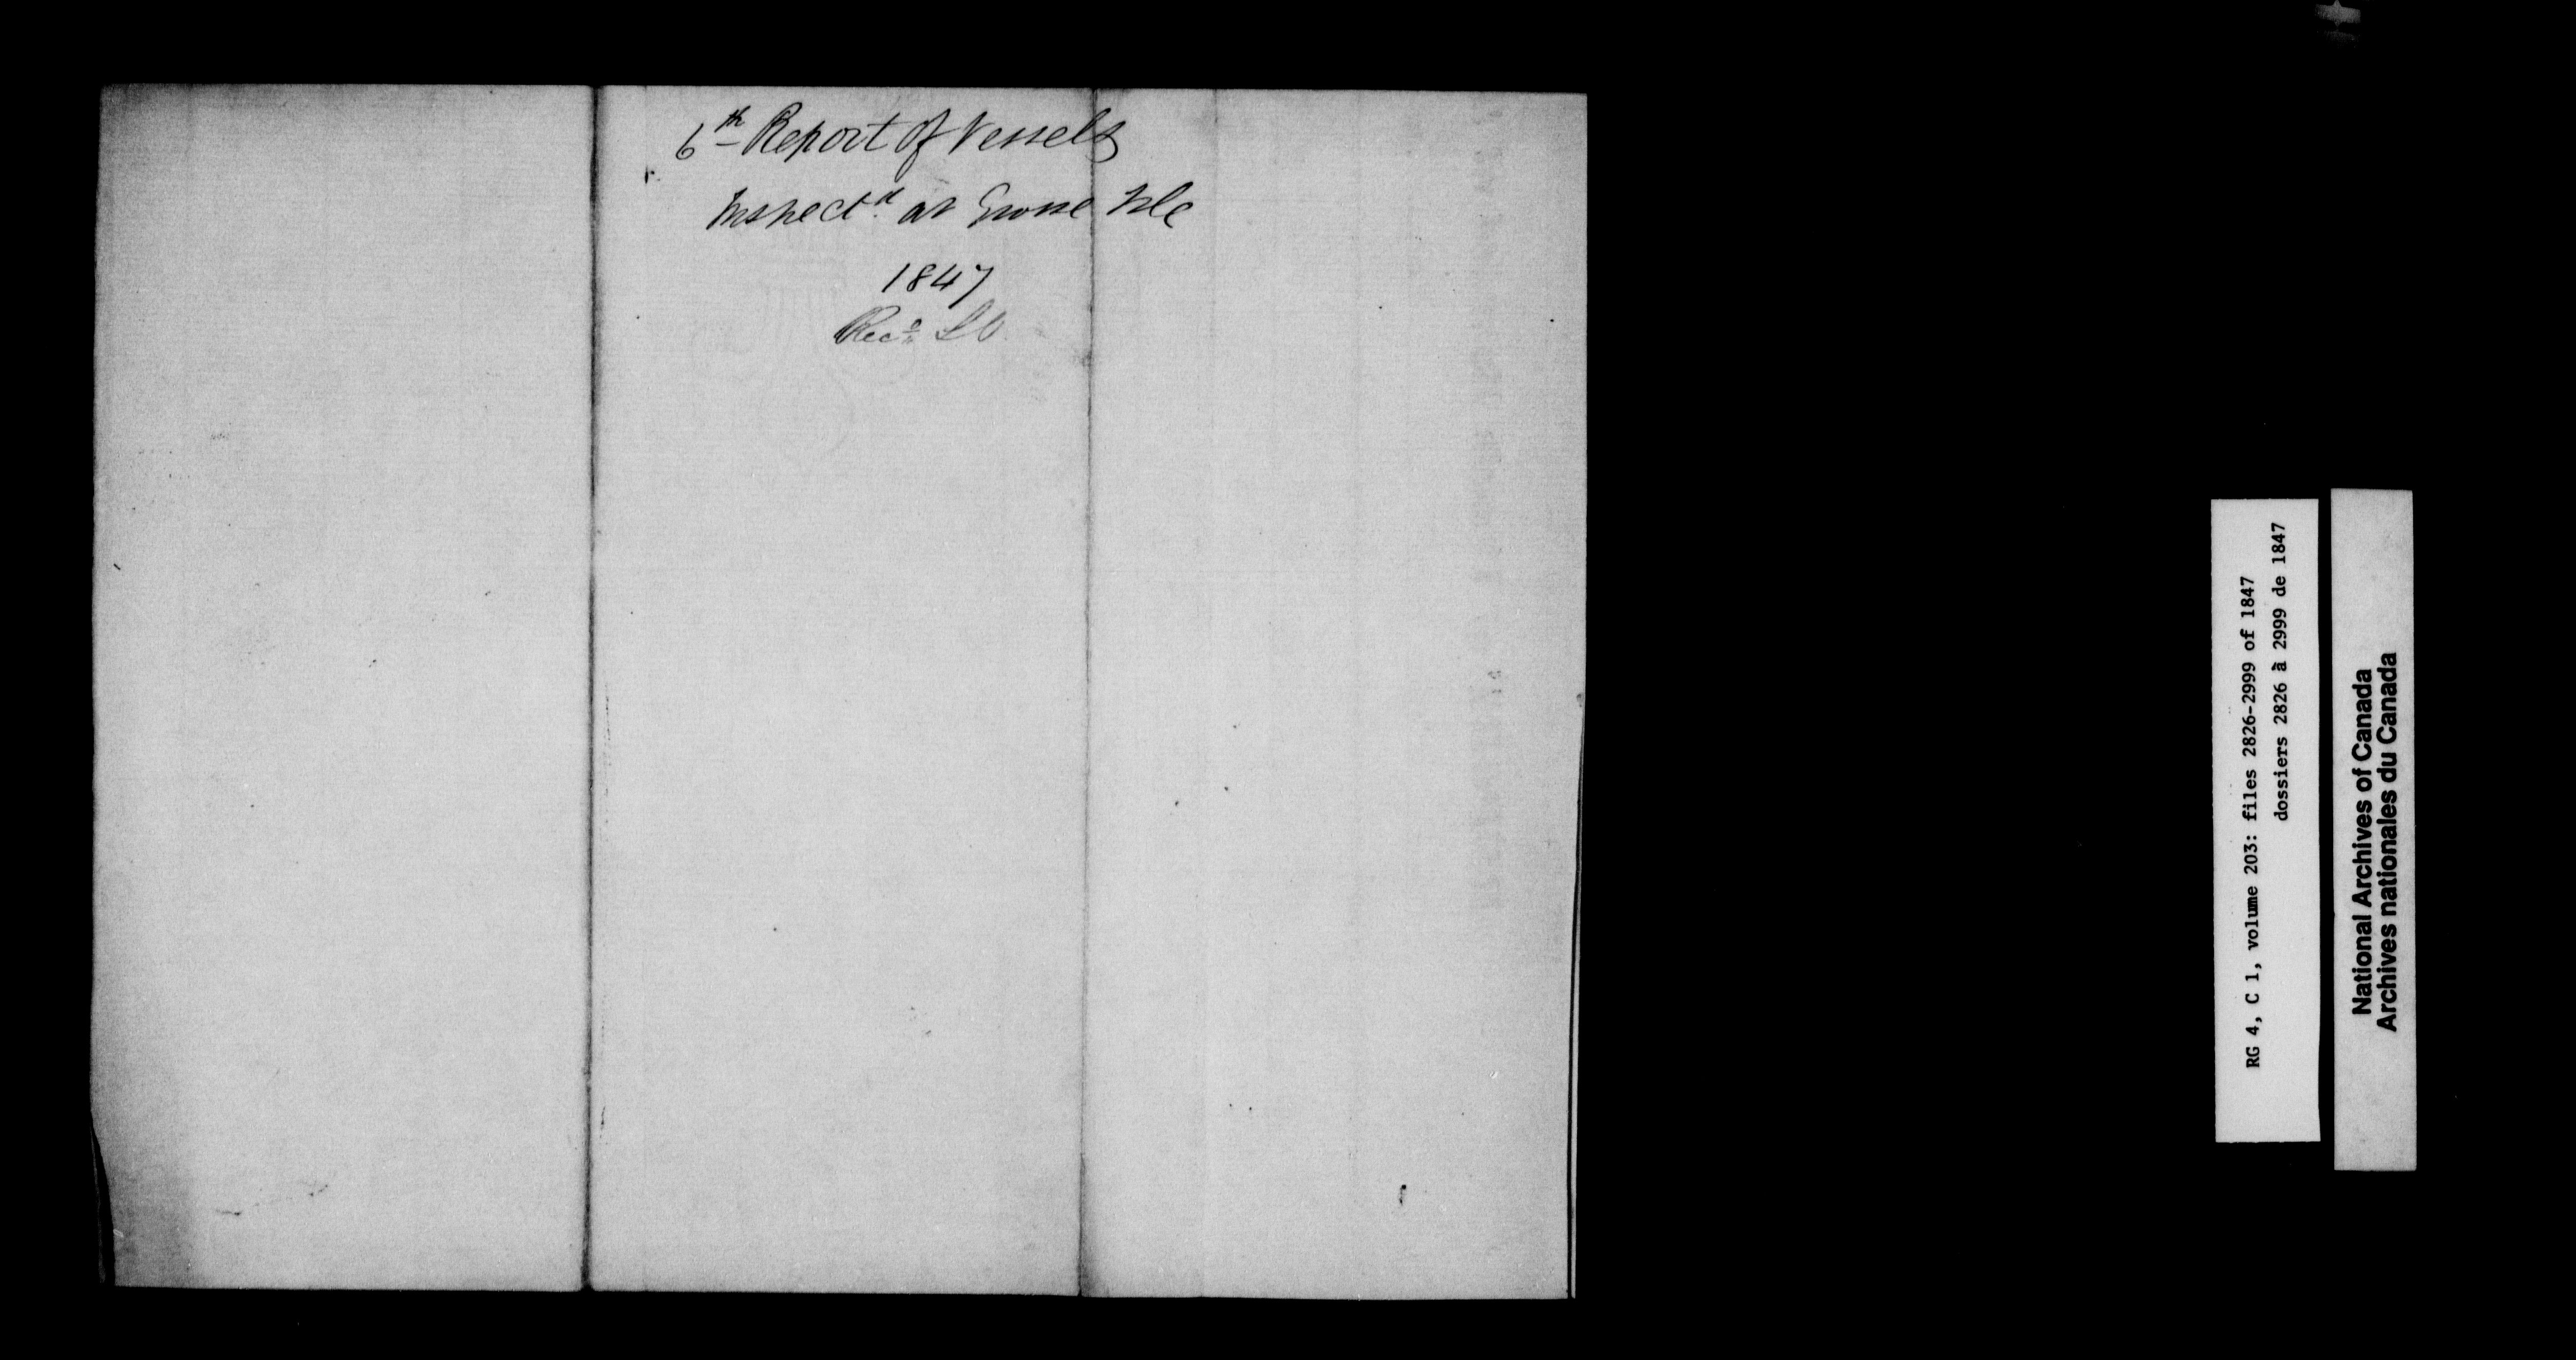 6th Report of Vessels
Inspectd at Grosse Isle
1847
Recd
RG 4, C 1, volume 203: files 2826-2999 of 1847
dossiers 2826 à 2999 de 1847
National Archives of Canada
Archives nationales du Canada